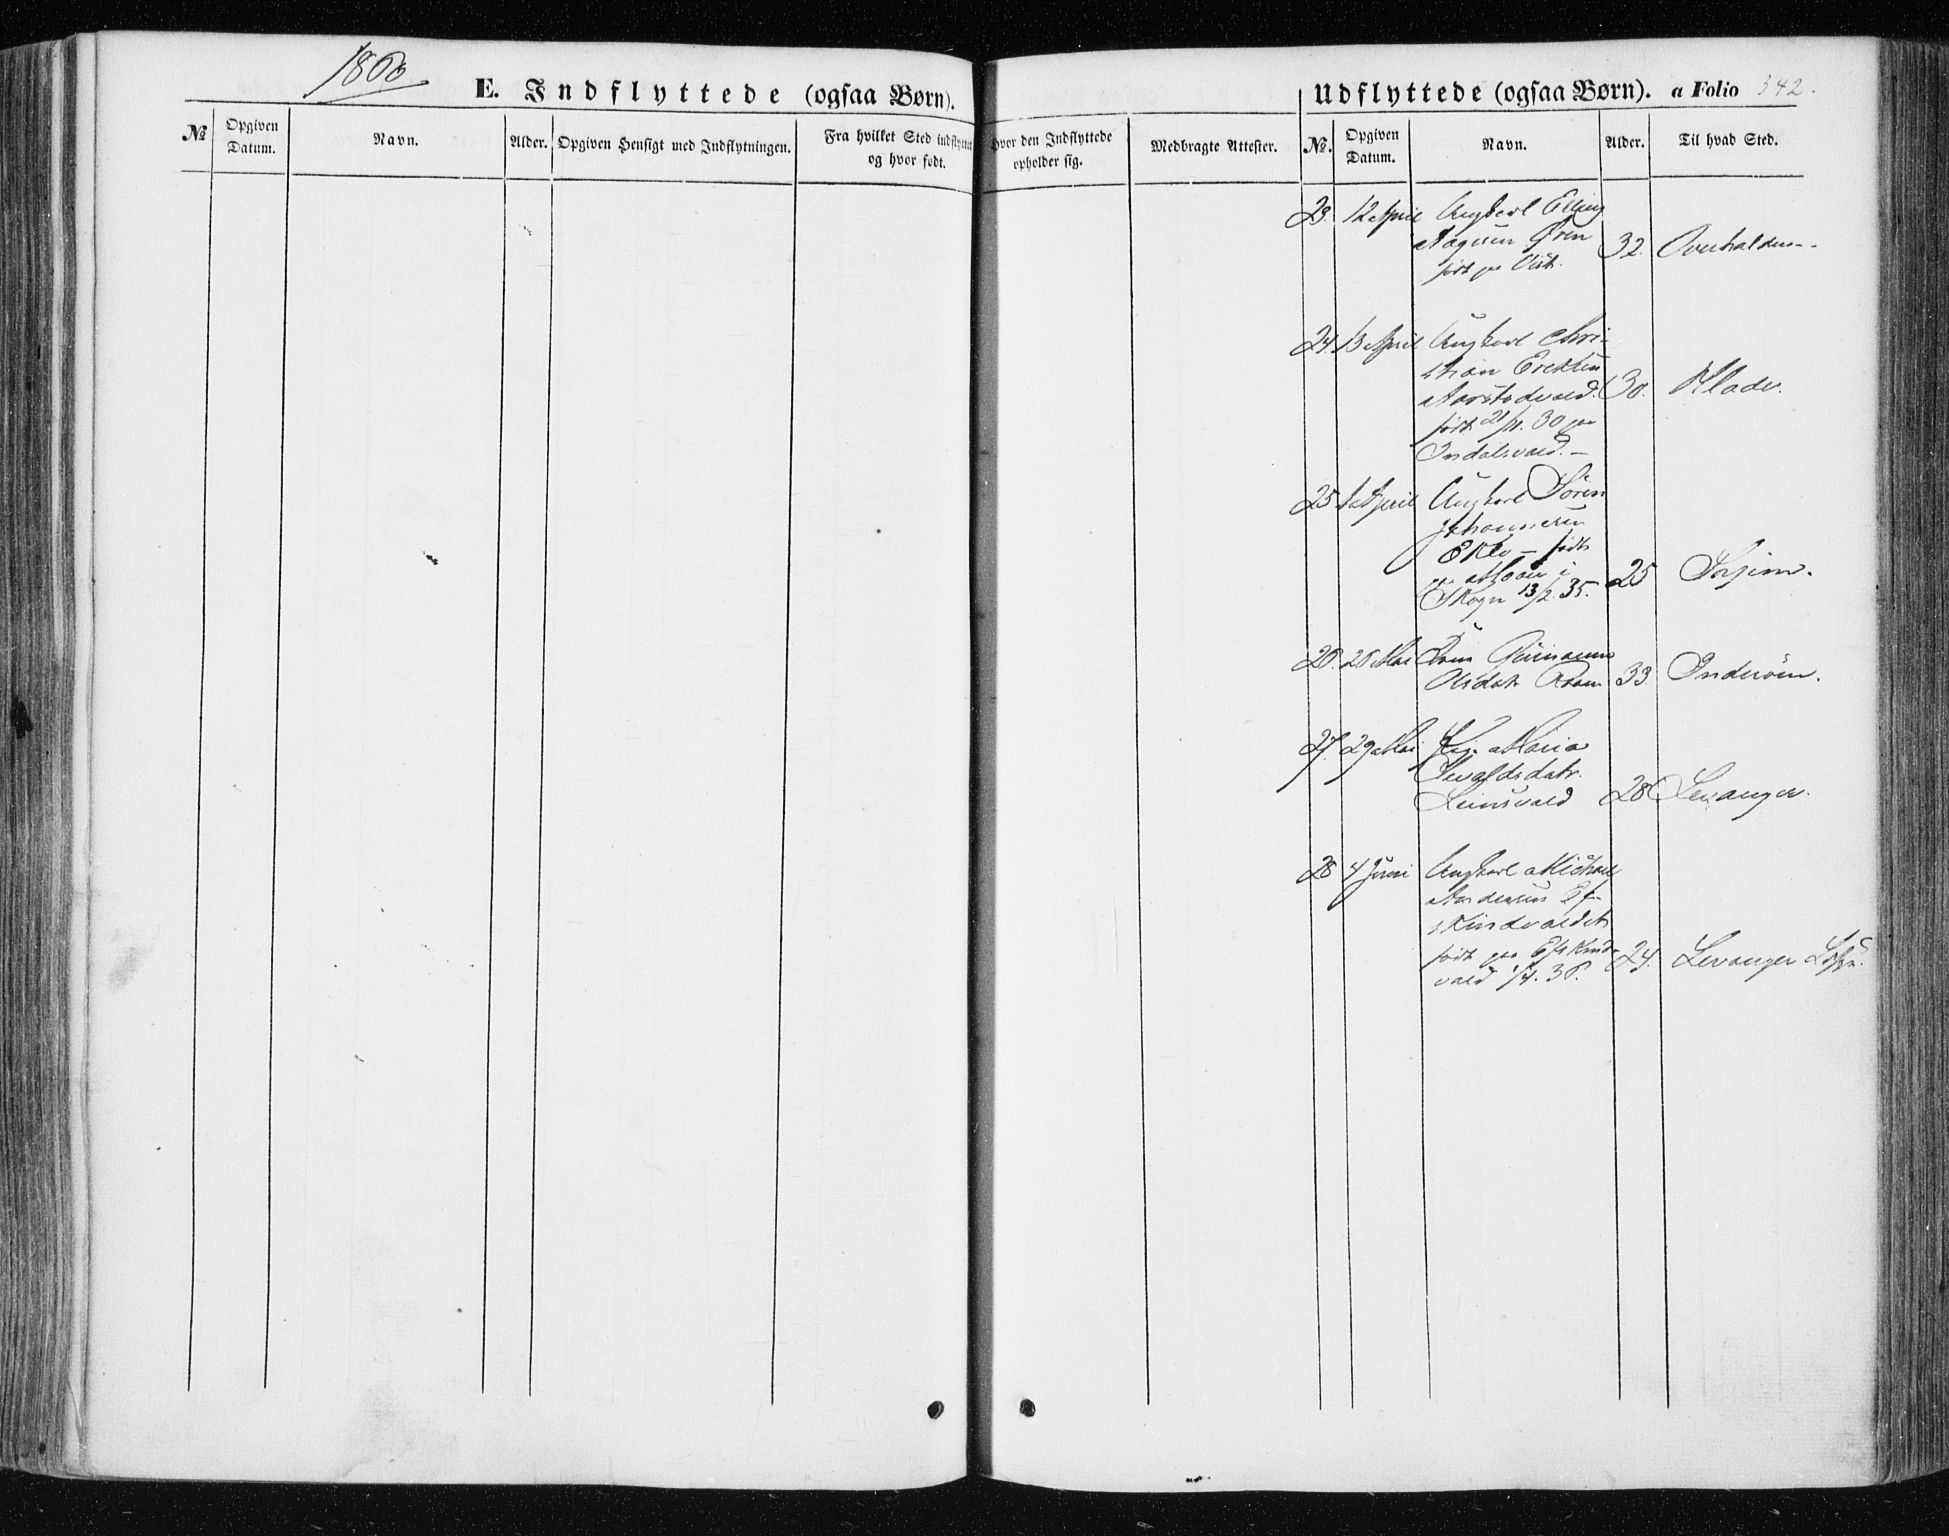 1860
E. Indflyttede (ogsaa Børn).
№
Opgiven
Datum.
Navn.
Alder.
Opgiven Hensigt med Indflytningen.
Fra hvilket Sted indflyttet
og hvor født.
Hvor den Indflyttede
opholder sig.
Medbragte Attester.
Udflyttede (ogsaa Børn). a Folio 342.
№.
Opgiven
Datum.
Navn.
Alder.
Til hvad Sted.
23. 12 April Ungkarl Elling
Aagesen Øren
født paa 32. Overhalden
24. 13 April Ungkarl Chri-
stian Ericksen
Aarstadvald. 30. Klade.
født 21/11. 30 paa
Indalsvald.
25 April Ungkarl Søren
Johannesen
Eklo - født
paa Moan i 25
Skogn 13/2. 35.
26. 26 Mai
Olsdatr 33 Inderøen.
27. 29 Mai Pige Maria
Sevaldsdatr.
Leinsvald 28 Levanger.
28 4 Juni Ungkarl Michael
Andersen
født paa 24. Levanger
vald